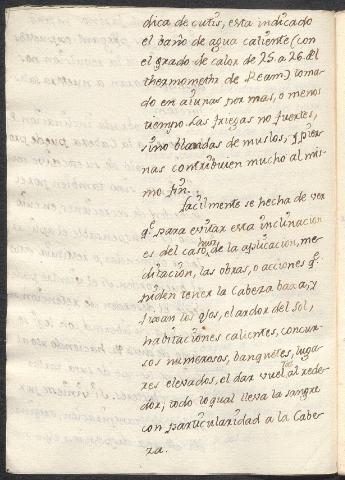 dica de cutis, esta indicado
el baño de agua caliente (con
el grado de calor de 25. a 26. del
thermometr de Ream) toma-
do en aiunas por mas, o menos
tiempo. Las friegas no fuertes,
sino blandas de muslos, y pier-
nas contribuien mucho al mis-
mo fin.
facilmente se hecha de ver
q.e para evitar esta inclinacion
es del caso huir de la aplicacion, me-
ditacion, las obras, o acciones q.e
piden tener la Cabeza baxa, y
fixan los ojos, el ardor del sol,
habitaciones calientes, concur-
sos numerosos, banquetes, luga-
res elevados, el dar vueltas al rede-
dor; todo lo qual lleva la sangre
con particularidad a la Cabe-
za.